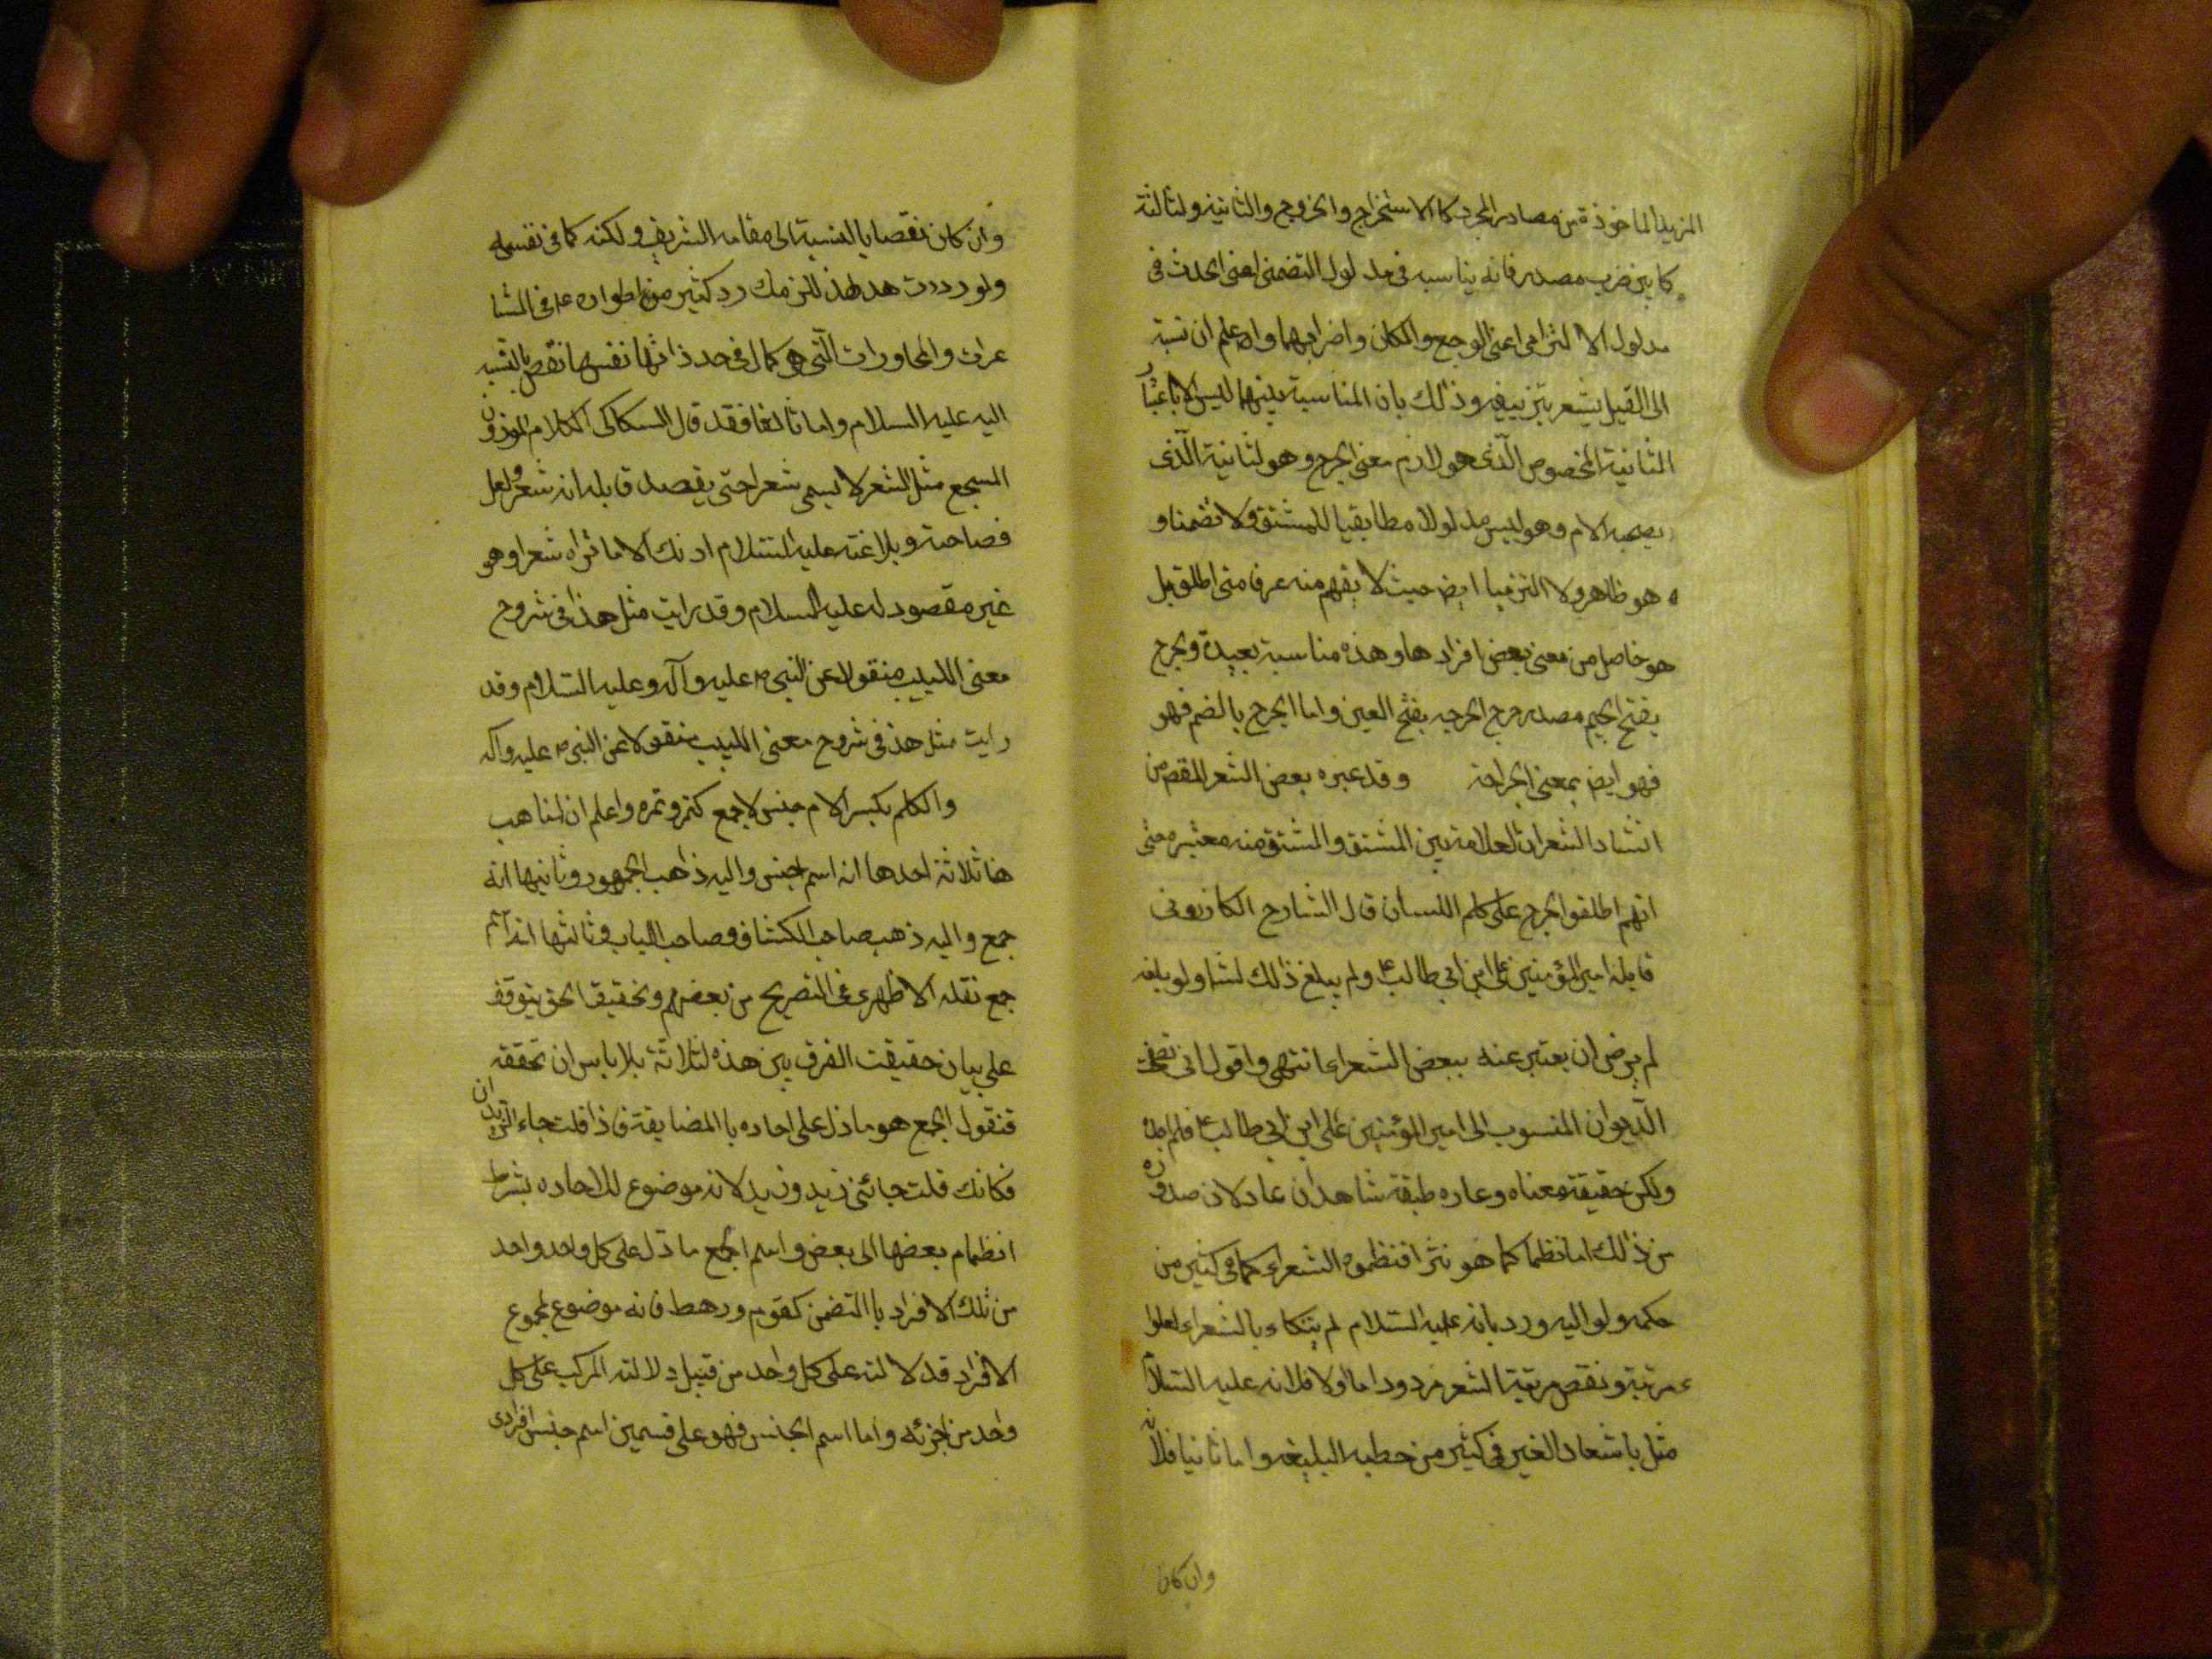 المزيد الماخوذة من مصادر المجرد كالاستخراج والخروج والثانية ولثالثة
كما بين ضرب مصدر فانه يناسبه في مدلول التضمنى اعنى الحدث فى
مدلول الالتزامى اعنى الوجع والمكان واضرابهما واعلم ان نسبة
الى القيل يشعر بتزييفه وذلك بان المناسبة بينهما ليس الا باعتبار
الثانية المخصوص الذى هو لازم معنى الجرح وهو لثانية الذى
يصحبه الام وهو ليس مدلولا مطابقيا للمشتق ولا تضمنا و
هو ظاهر ولا التزميا ايض حيث لا يفهم منه عرفا متى اطلق بل
هو حاصل من معنى بعض افرادها وهذه مناسبة بعيدة ويجرح
بفتح الجيم مصدر جرح الجرحه بفتح العين واما الجرح بالضم فهو
فهو ايض بمعنى الجراحة وقد عبره بعض الشعر المقص من
انشاد الشعر ان لعلامة بين المشتق والمشتق منه معتبره حتى
انهم اطلقوا الجرح على كلم اللسان قال الشارح الكازرونى
قايله امير المؤمنين على ابن ابي طالب ع ولم يبلغ ذلك لشا ولو بلغه
لم يرض ان يعتبر عنه ببعض الشعراء انتهى واقول انى تصفحت
الديوان المنسوب الى امير المؤمنين على ابن ابي طالب ع فلم اجده
ولكن حقيقة معناه وعاره طبقة شاهدان عادلان صدوره
من ذلك اما نظما كما هو نثرا فنظموه الشعراء كما فى كثير من
حكمه ولو اليه ورد بانه عليه السلام لم يتكاء بالشعراء لعلوا
مرتبة ونقص مرتبة الشعر مردود اما اولا فلانه عليه السلام
مثل باشعار الغير فى كثير من خطبه البليغه واما ثانيا فلانه
وان كان
وان كان نقصا بالنسبة الى مقامه الشريف ولكنه كما فى نفسه
ولو رددت هذا لزمك رد كثير من اطواره ع فى المشا
عرات والمحاورات التى هو كمال فى حد ذاتها نفسها نقص بالنسبه
اليه عليه السلام واما ثالثا فقد قال السكاكى الكلام الموذون
المسجع مثل الشعر لا يسمى شعرا حتى يقصد قايله انه شعر ولعل
فصاحته وبلاغته عليه السلام ادنك الا ما تراه شعرا وهو
غير مقصود له عليه السلام وقد رايت مثل هذا فى شروح
معنى اللبيب منقولا عن النبى ص عليه وآله وعليه السلام وقد
رايت مثل هذ فى شروح معنى اللبيب منقولا عن النبى ص عليه وآله
والكلم بكسر الام جنس لاجمع كتمر وتمره واعلم ان لمذاهب
هنا ثلاثة احدها انه اسم جنس واليه ذاهب الجمهور وثانيها انه
جمع واليه ذهب صاحب الكشاف وصاحب اللباب وثالثها انه اسم
جمع نقله الاظهرى عن التصريح من بعضهم وتحقيق الحق يتوقف
على بيان حقيقت الفرق بين هذه لثلاثة بلا باس ان تحققه
فنقول الجمع هو ما دل على احاده باالمضايقة فاذا قلت جاء الزيدان
فكانك قلت جائنى زيد وزيد لانه موضوع للاحاده بشرط
انظمام بعضها الى بعض واسم الجمع ما دل على كل واحد واحد
من تلك الافراد باالتضمن كقوم ورهط فانه موضوع لمجموع
الافراد قد لالته على كل واحد من قبيل دلالته المركب على كل
واحد من اجزئه واما اسم الجنس فهو على قسمين اسم جنس افرادى